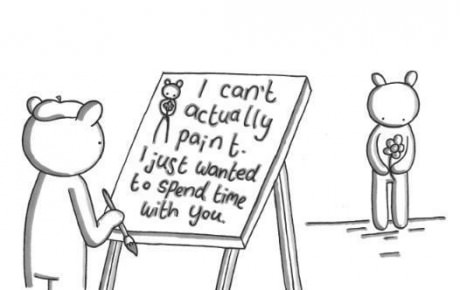 I can't
actually
paint.
I just wanted
to spend time
with you.